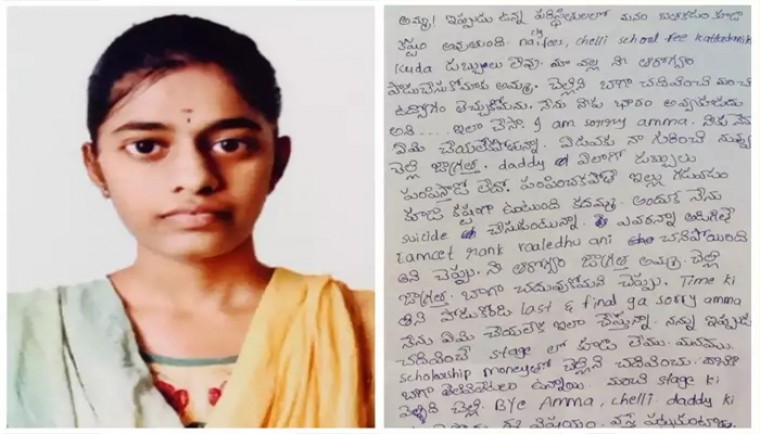 అమ్మ! ఇప్పుడు ఉన్న పరిస్థితులలో మనం బతకడం కూడా
కష్టం అవుతుంది. na clg fees, chelli school fee kattadaniki
kuda డబ్బులు లేవు. మా వల్ల నీ ఆరోగ్యం
పాడుచేసుకోమాకు అమ్మ. చెల్లిని బాగా చదివించి మంచి
ఉద్యోగం తెచ్చుకోమను. నేను నీకు భారం అవ్వకూడదు
అని .... ఇలా చేసా. I am sorry amma. నీకు నేను
ఏమి చేయలేకపోతున్నా. ఏడువకు నా గురించి నువ్వు
చెల్లి జాగ్రత్త. daddy ఎలాగో డబ్బులు
పంపిస్తాడో లేదో. పంపించకపోతే ఇల్లు గడవడం
కూడా కష్టంగా ఉంటుంది కదమ్మ. అందుకే నేను
suicide చేసుకుంటున్నా. ఎవరన్నా అడిగితే
Eamcet rank raaledhu ani చనిపోయింది
అని చెప్పు. నీ ఆరోగ్యం జాగ్రత్త అమ్మ. చెల్లి
జాగ్రత్త. బాగా చదువుకోమని చెప్పు. Time ki
తిని పడుకోండి. last & final ga sorry amma
నేను ఏమి చేయలేక ఇలా చేస్తున్నా. నన్ను ఇప్పుడు
చదివించే stage లో కూడా లేము మనము.
scholarship money తో చెల్లిని చదివించు.
బాగా తెలివితేటలు ఉన్నాయి. మంచి stage కి
చెల్లి. Bye Amma, chelli. daddy ki
ఈ విషయం.